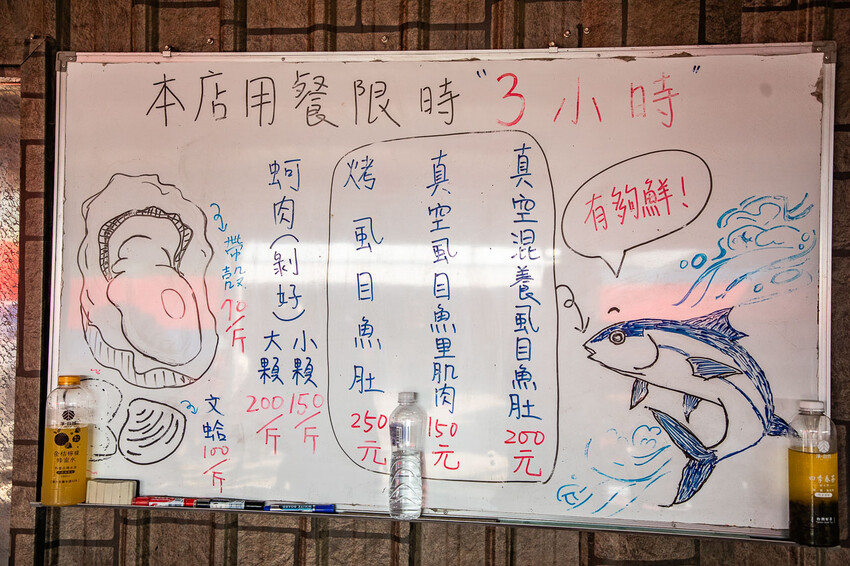 本店用餐限時"3小時"
有夠鮮!
真空混養虱目魚肚 200元
真空虱目魚里肌肉 150元
烤虱目魚肚 250元
蚵肉(剝好)
小顆 150/斤
大顆 200/斤
帶殼 70/斤
文蛤 100/斤